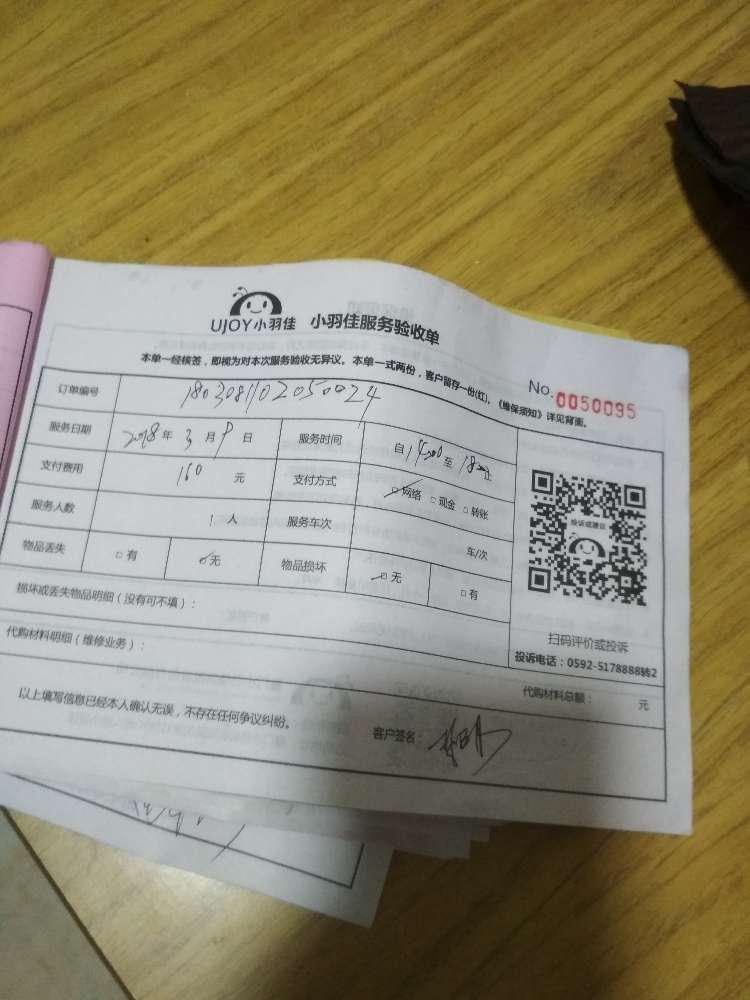 UJOY小羽佳 小羽佳服务验收单
本单一经核签，即视为对本次服务验收无异议。本单一式两份，客户留存一份(红)，《维保须知》详见背面。
No.0050095
订单编号 1803081102050024
服务日期 2018年3月9日 服务时间 自14:00至18:00止
支付费用 160元 支付方式 □网络 □现金 □转账
服务人数 1人 服务车次 车/次
物品丢失 □有 □无 物品损坏 □无 □有
损坏或丢失物品明细（没有可不填）：
代购材料明细（维修业务）：
投诉或建议
扫码评价或投诉
投诉电话：0592-5178888转2
代购材料总额： 元
以上填写信息已经本人确认无误，不存在任何争议纠纷。
客户签名：